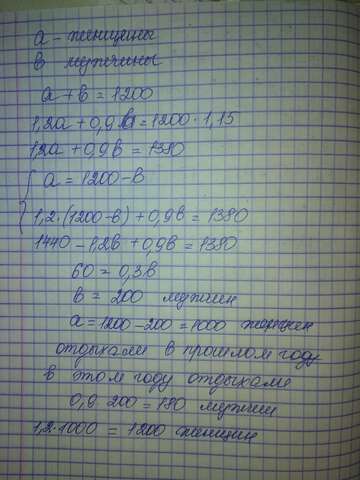 а - женщины
в мужчины
а + в = 1200
1,2а + 0,9в = 1200 · 1,15
1,2а + 0,9в = 1380
а = 1200 - в
1,2 · (1200 - в) + 0,9в = 1380
1440 - 1,2в + 0,9в = 1380
60 = 0,3в
в = 200 мужчин
а = 1200 - 200 = 1000 женщин
отдыхали в прошлом году
в этом году отдыхали
0,9 200 = 180 мужчин
1,2 · 1000 = 1200 женщин